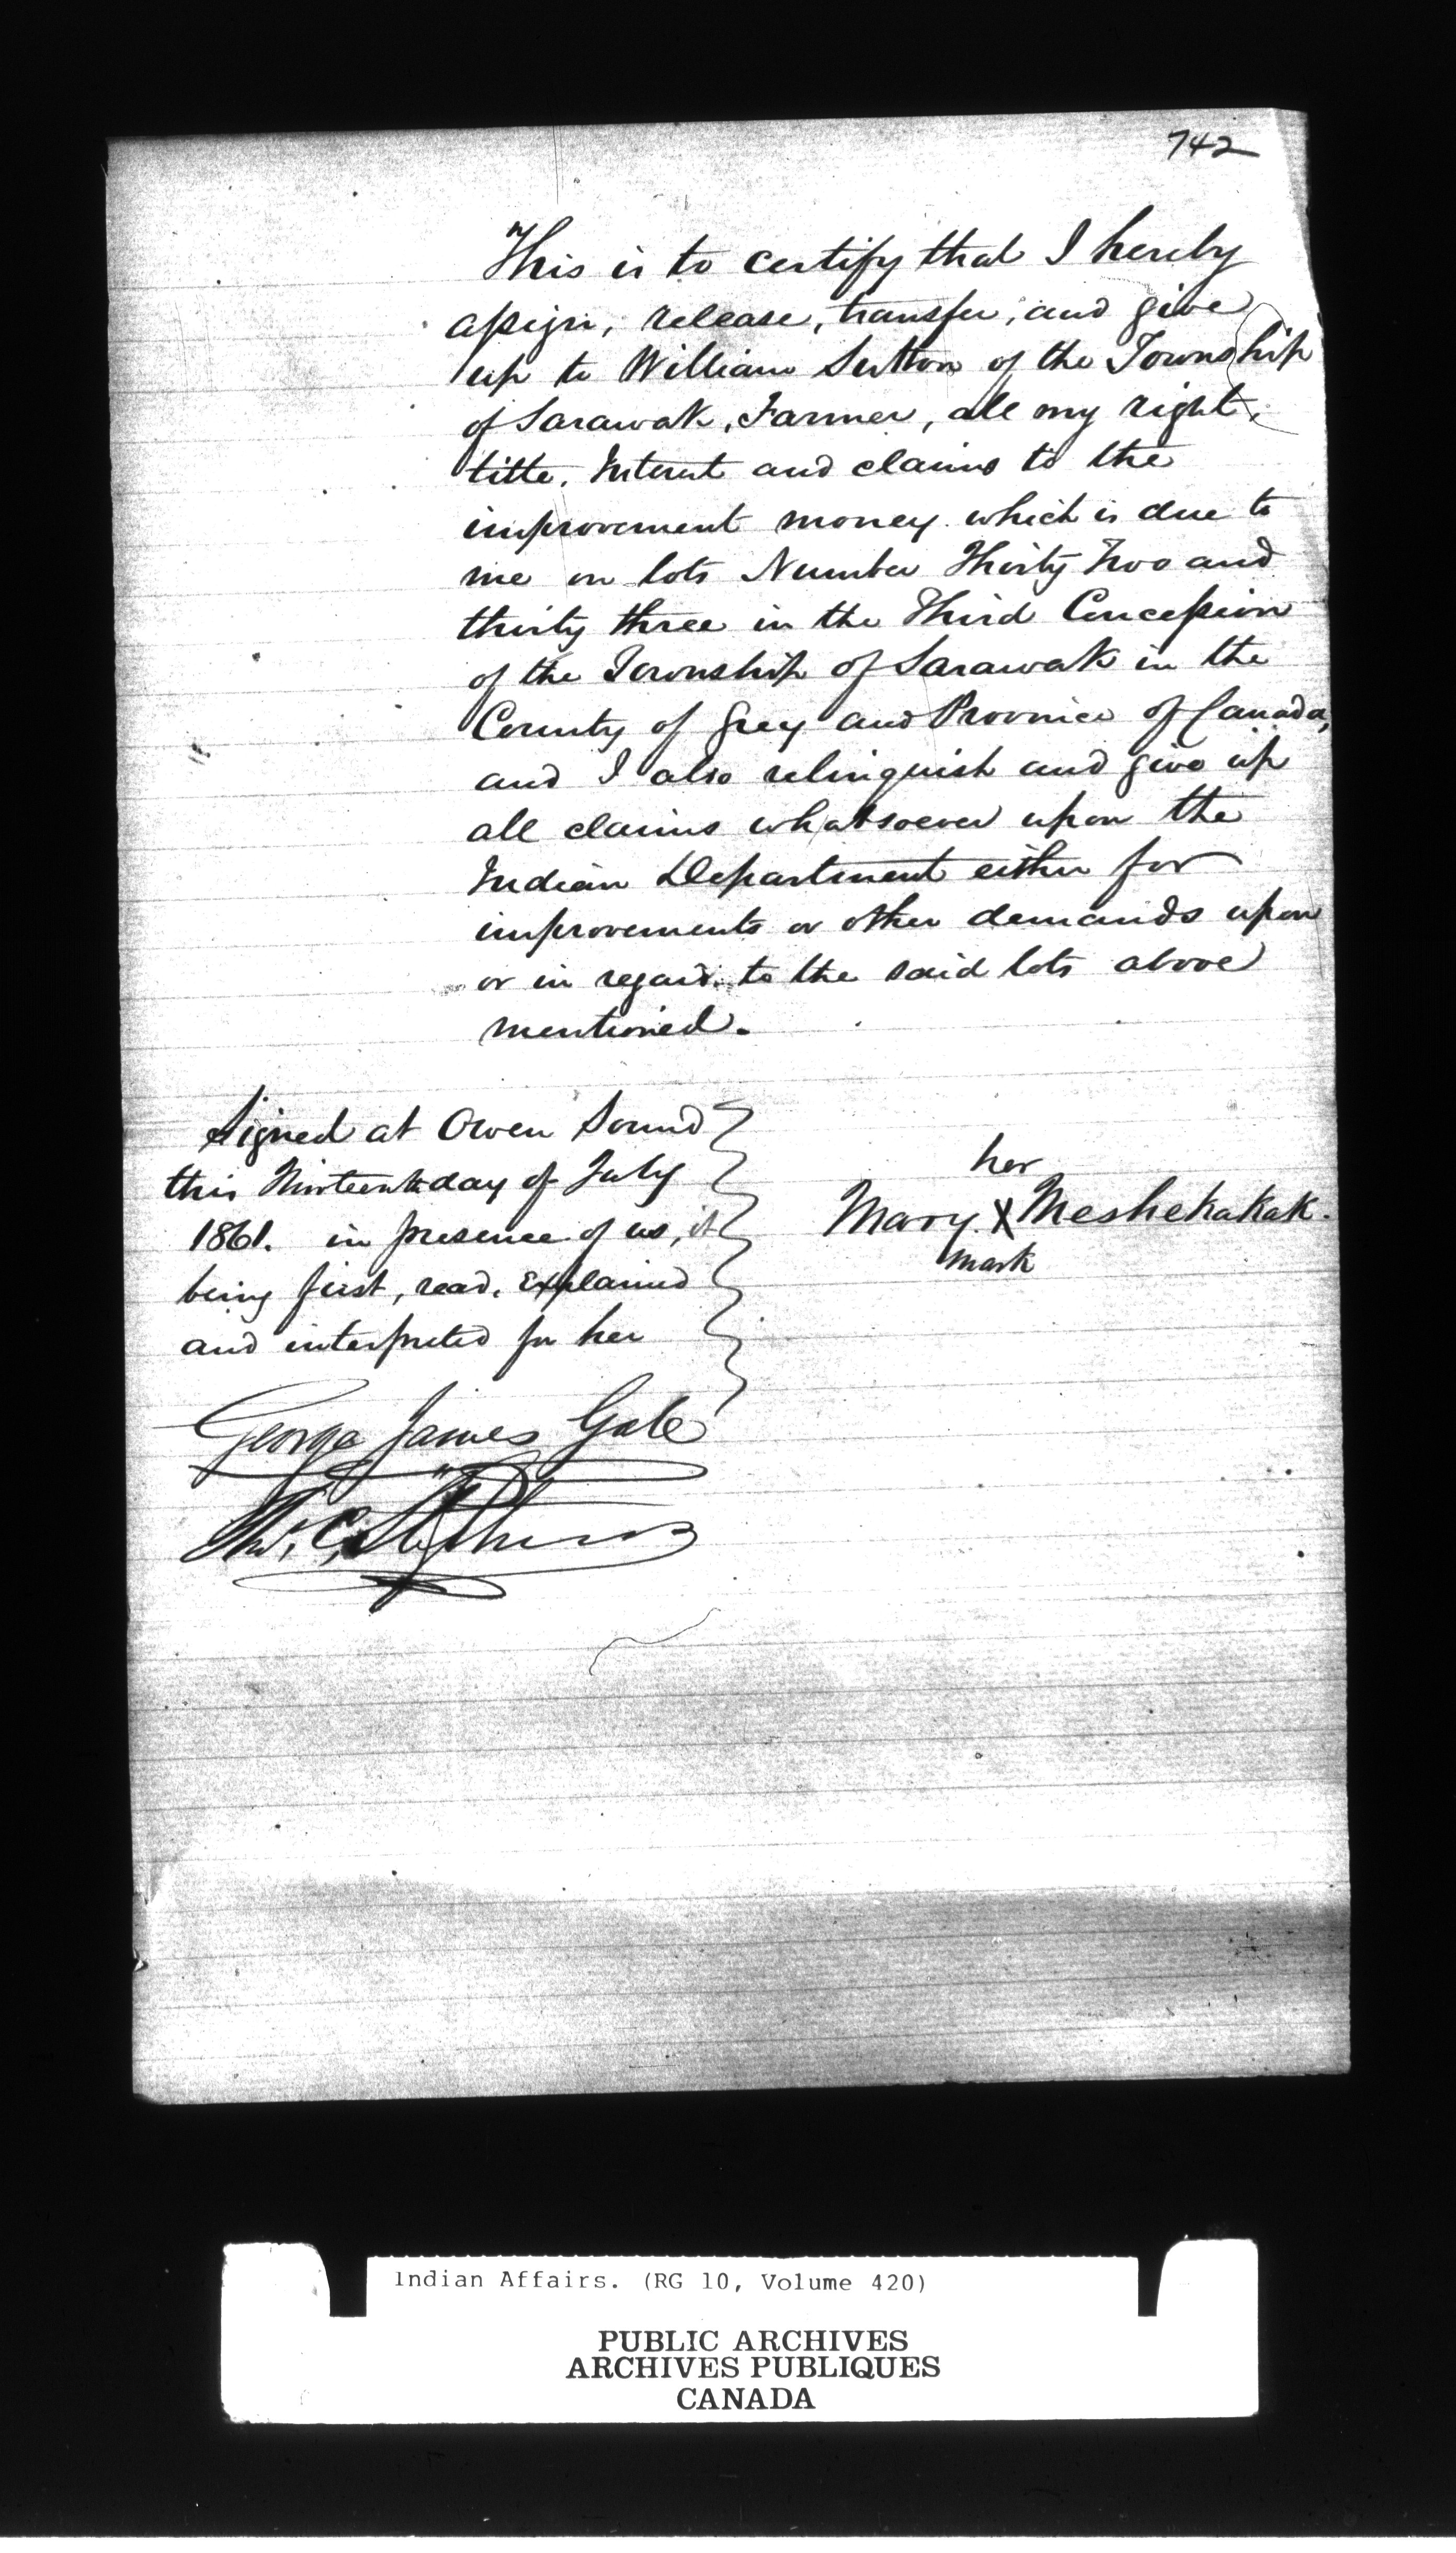 742
This is to certify that I hereby
assign, release, transfer, and give
up to William Sutton of the Township
of Sarawak, Farmer, all my right,
title, Interest and claims to the
improvement money which is due to
me on lots Number Thirty Two and
thirty three in the Third Concession
of the Township of Sarawak in the
County of Grey and Province of Canada,
and I also relinquish and give up
all claims whatsoever upon the
Indian Department either for
improvements or other demands upon
or in regard to the said lots above
mentioned.
Signed at Owen Sound
this day of July
1861. in presence of us, it
being first, read, Explained
and interpreted for her
her
Mary X Meshekakak.
mark
George James Gale
C. Stephens
Indian Affairs. (RG 10, Volume 420)
PUBLIC ARCHIVES
ARCHIVES PUBLIQUES
CANADA